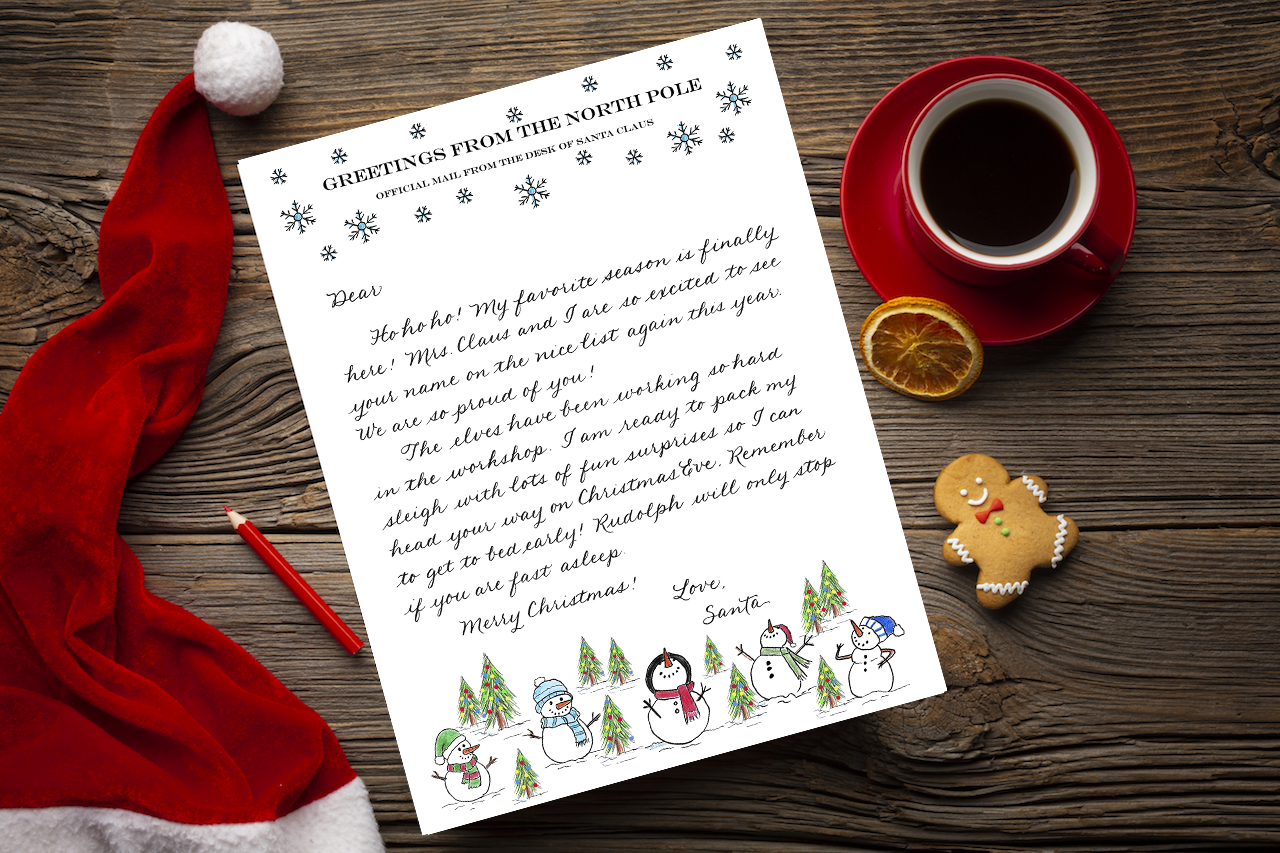 GREETINGS FROM THE NORTH POLE
OFFICIAL MAIL FROM THE DESK OF SANTA CLAUS
Dear
Ho ho ho! My favorite season is finally
here! Mrs. Claus and I are so excited to see
your name on the nice list again this year.
We are so proud of you!
The elves have been working so hard
in the workshop. I am ready to pack my
sleigh with lots of fun surprises so I can
head your way on Christmas Eve. Remember
to get to bed early! Rudolph will only stop
if you are fast asleep.
Merry Christmas!
Love,
Santa